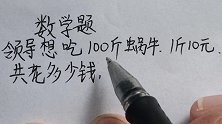 数学题
领导想吃100斤蜗牛.1斤10元.
共花多少钱,